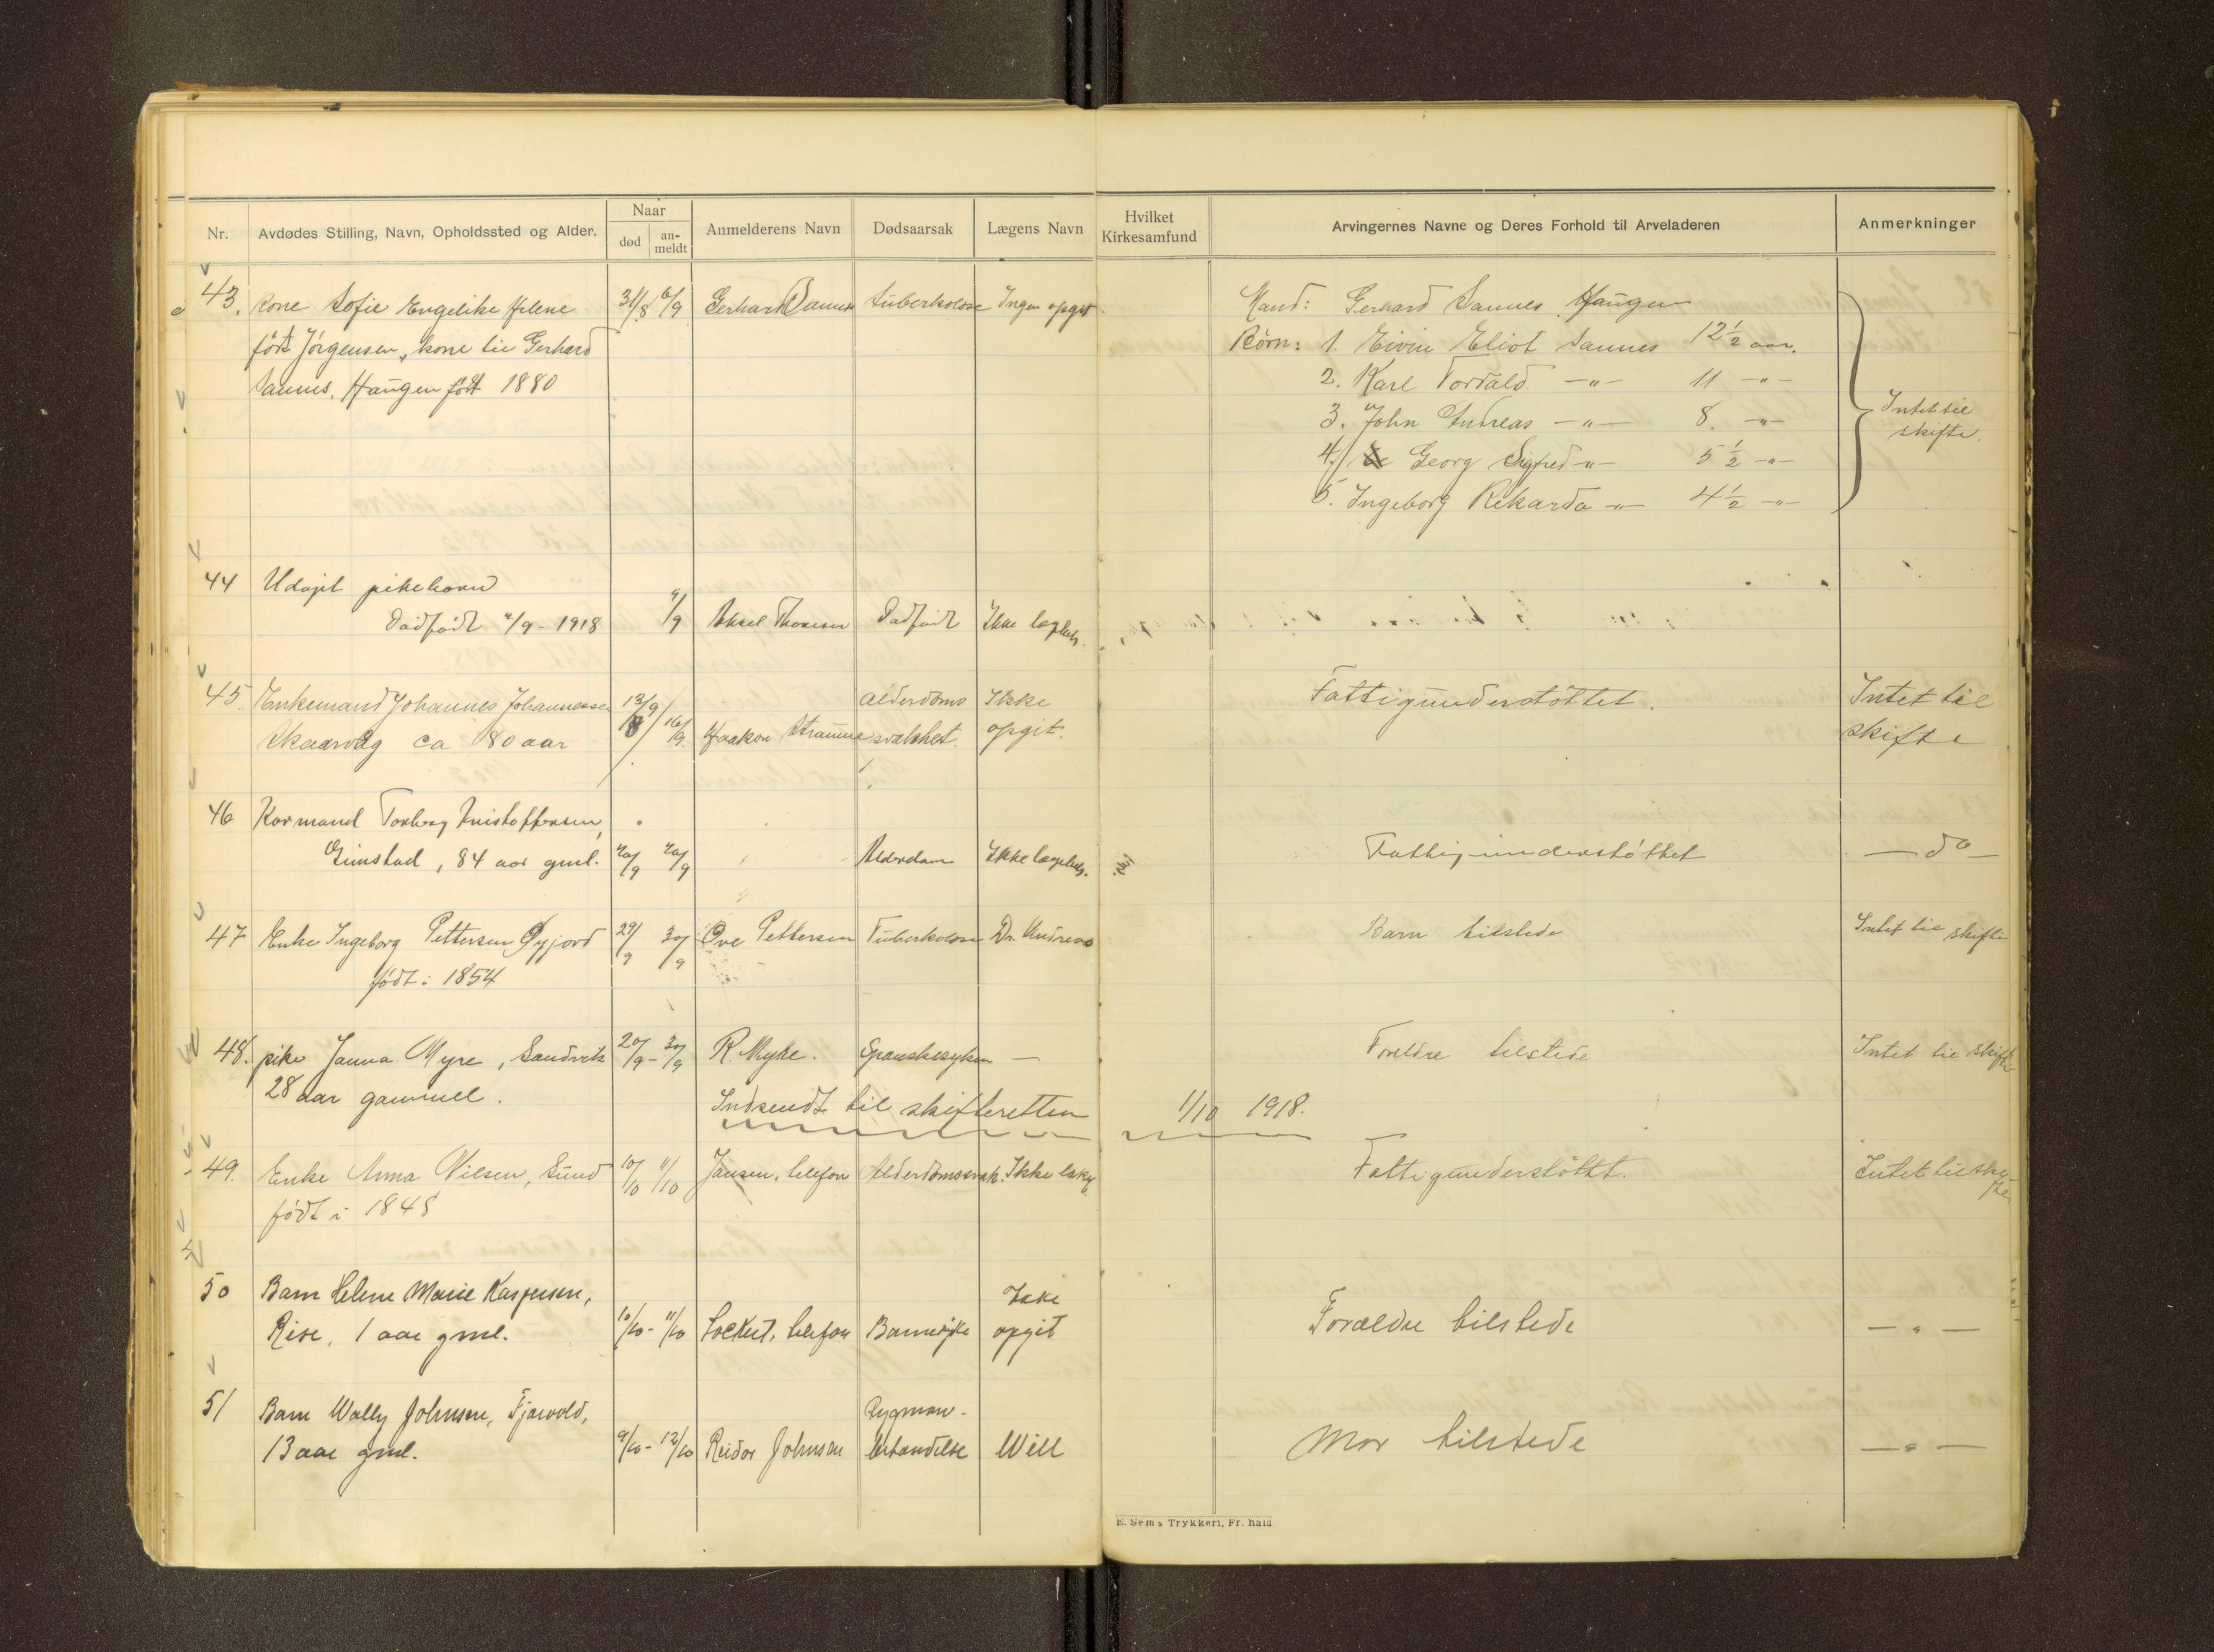 Nr.
Avdødes Stilling, Navn, Opholdssted og Alder.
Naar
død
an-
meldt
Anmelderens Navn
Dødsaarsak
Lægens Navn
Hvilket
Kirkesamfund
Arvingernes Navne og Deres Forhold til Arveladeren
Anmerkninger
43. Kone Sofie Engelike Helene 31/8 6/9 Gerhard Sannes tuberkolose Ingen opgit
født Jörgensen, kone til Gerhard
Sannes, Haugen født 1880
Mand: Gerhard Sannes Haugen
Börn: 1. Eivin Eliot Sannes 12 1/2 aar.
2. Karl Torvald —"— 11 —"—
3. John Andreas —"— 8. —"—
4. Georg Sigfred —"— 5 1/2 —"—
5. Ingeborg Rikarda —"— 4 1/2 —"—
Intet til
skifte.
44 Udøpt pikebarn
Dødfødt 4/9 - 1918 9/9 Aksel Thomesen Dødfødt Ikke
45. Enkemand Johannes Johannessen 13/9 alderdoms Ikke
Skaarvåg ca 80 aar 16/9 Haakon Straume svakhet. opgit.
Fattigunderstöttet.
Intet til
skifte
46 Kormand Torberg Kristoffersen,
Grimstad, 84 aar gml. 20/9 20/9 Alderdom Ikke
Fattigunderstöttet
— do —
47 Enke Ingeborg Pettersen Øyjord 29/9 30/9 Ove Pettersen Tuberkolose Dr. Andreas
født i 1854
Barn tilstede
Intet til skifte
48. pike Janna Myre, Sandvik 20/9 - 30/9 R. Myke. Spanskesyken —
28 aar gammel.
Foreldre tilstede
Intet til skifte
Indsendt til skifteretten 1/10 1918.
49. Enke Anna Nilsen, Sund 10/10 11/10 Jansen, telefon Alderdomssvak. Ikke
født i 1848
Fattigunderstöttet.
Intet til skifte
50 Barn Helene Marie Kaspersen, Ikke
Rise, 1 aar gml. 10/10 - 11/10 Lockert, telefon Barnesyke opgit
Forældre tilstede
— " —
51 Barn Wally Johnsen, Tjørvold, Rygmarv-
13 aar gml. 9/10 - 12/10 Reidar Johnsen betændelse Will
Mor tilstede
— " —
E. Sem's Trykkeri, Fr. hald